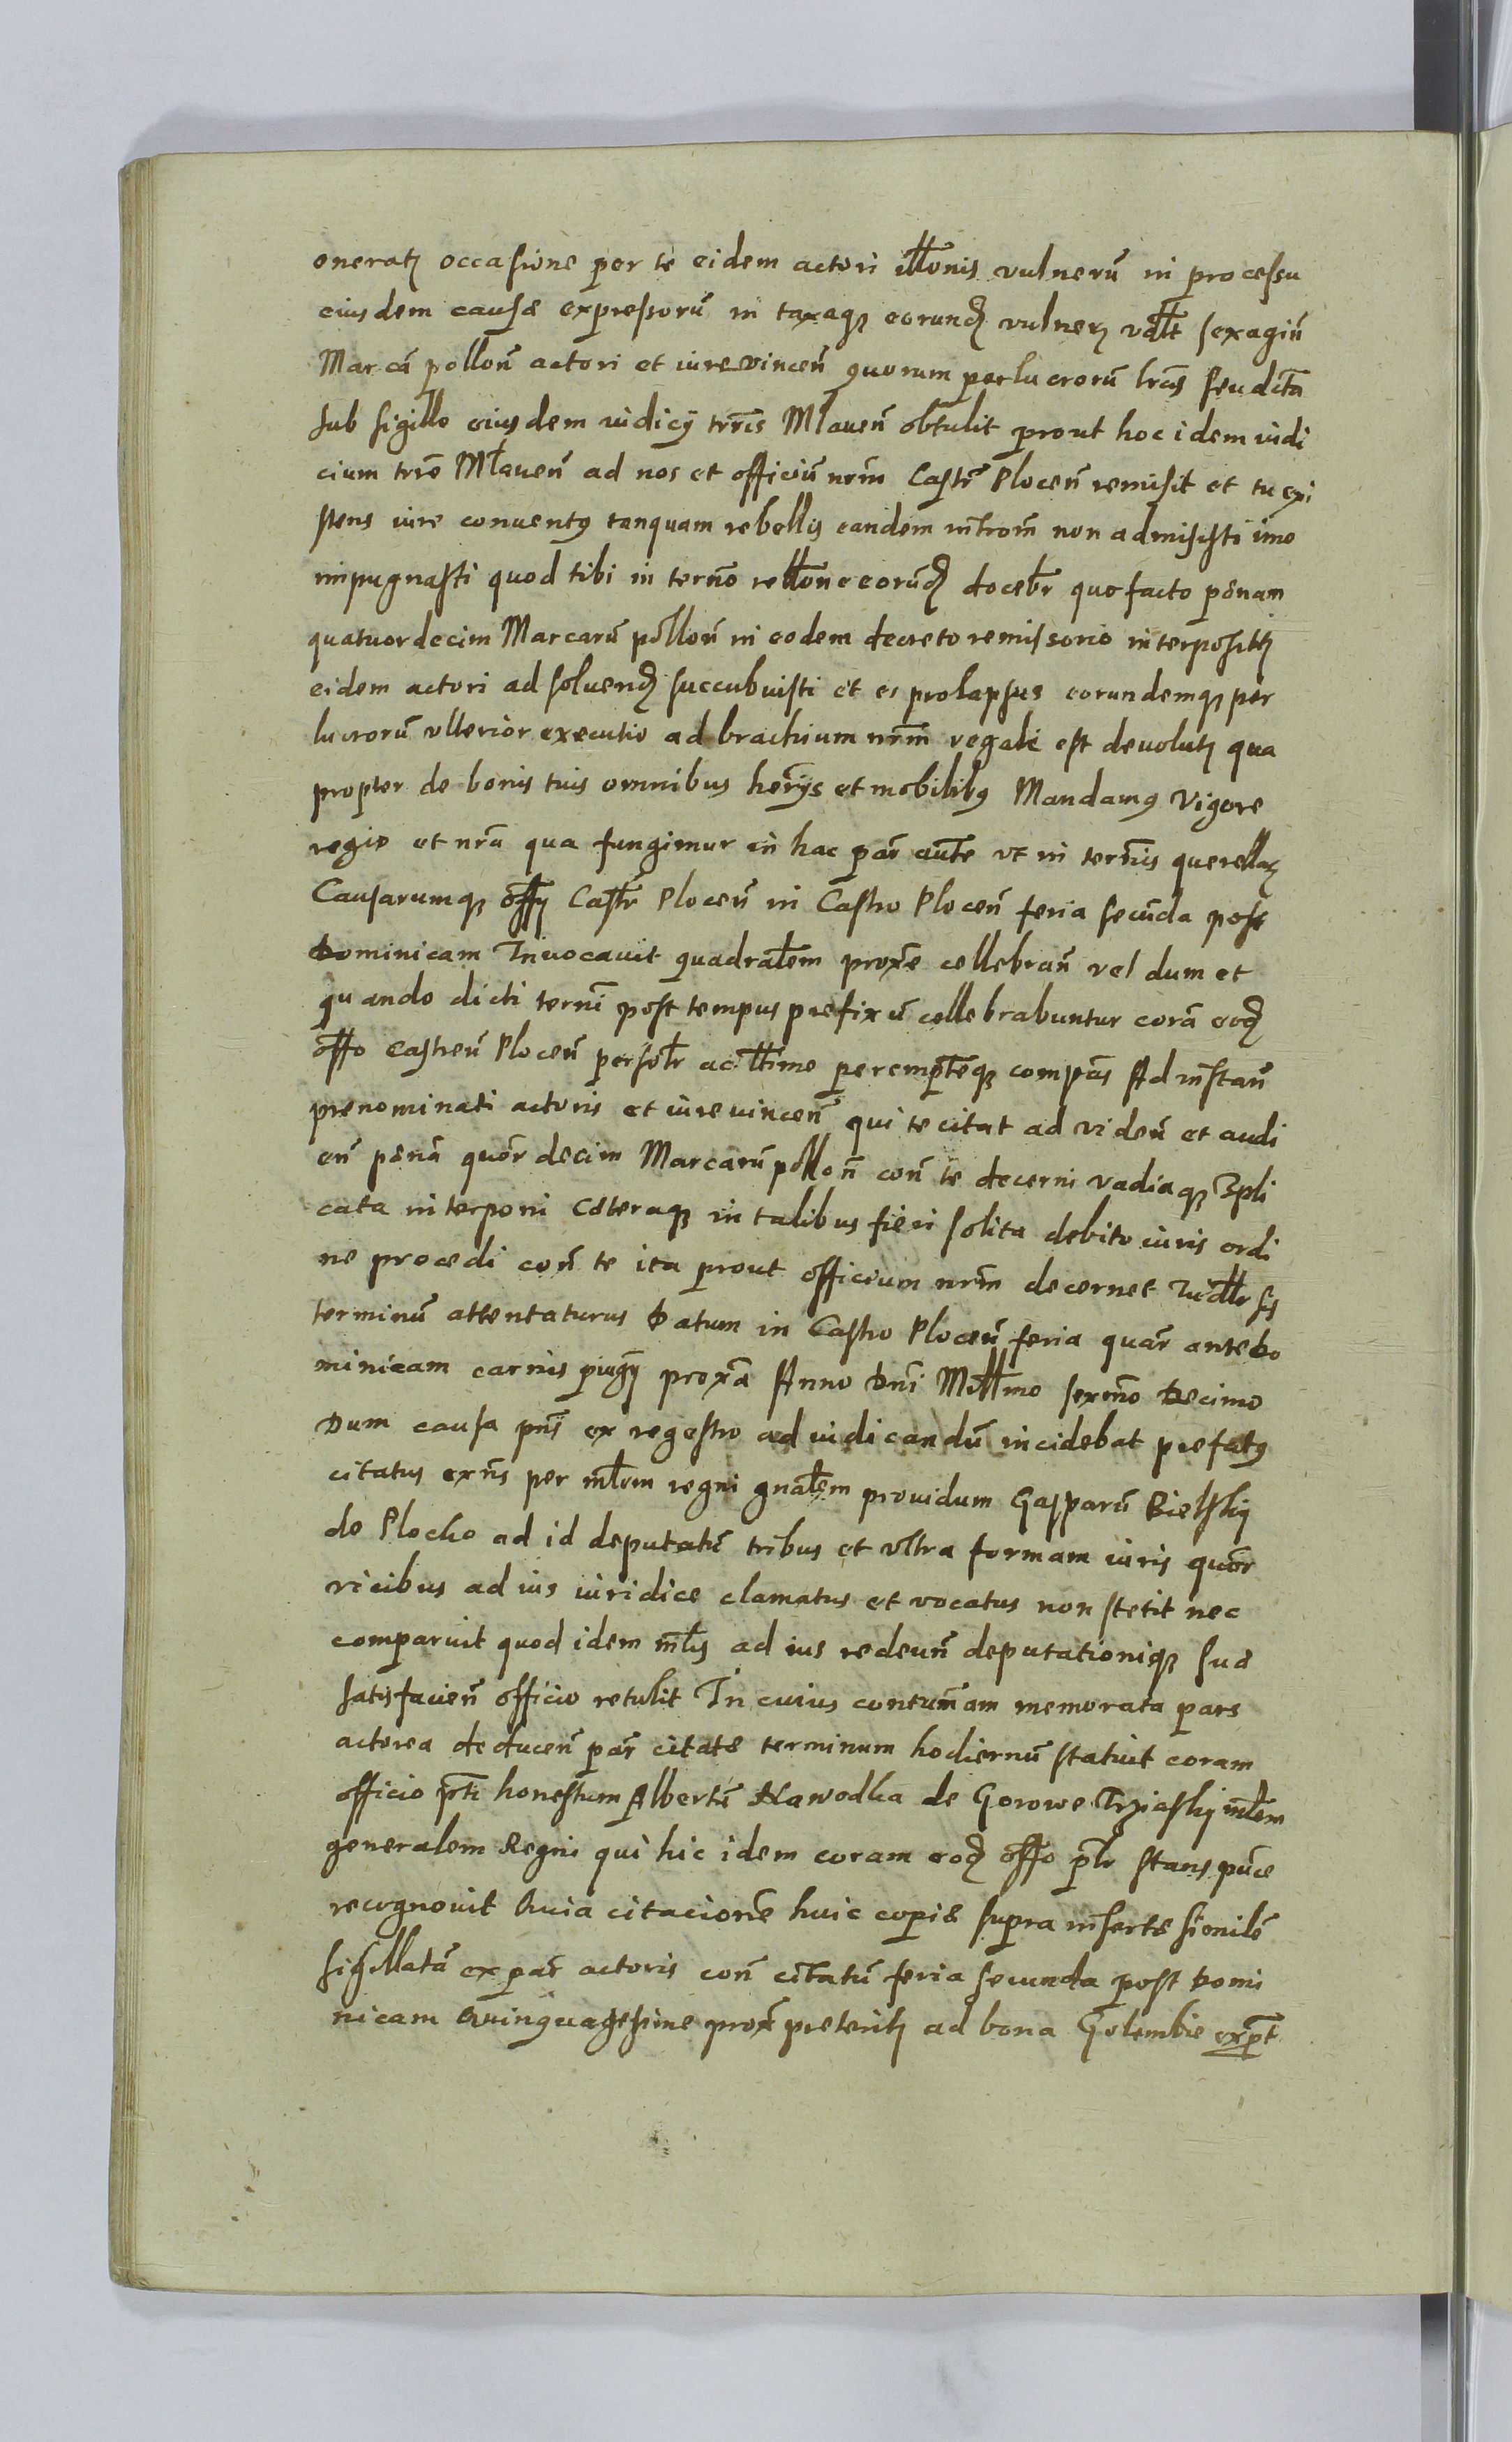 oneratꝫ occasione per te eidem actori illōnis vulnerū in processu
eiusdem causæ expressorū in taxaqꝫ eorundꝫ vulnerꝫ vdlt sexagiñ
Marcā pollon̄ actori et iurevincen̄ quorum perlucrorū lrās seu dictā
sub sigillo eiusdem iudicÿ trr̄is Mlauen̄ obtulit prout hoc idem iudi
cium trrē Mlauen̄ ad nos et officiū nrm̄ Castr̄ Plocen̄ remisit et tu exi
stens iure conuentꝰ tanquam rebellis eandem intrōm̄ non admisisti imo
impugnasti quod tibi in tern̄o rellōne eorūdꝫ doceb̄r quo facto pænam
quatuordecim Marcarū pollon̄ in eodem decreto remissorio interpositꝫ
eidem actori ad soluendꝫ succubuisti et es prolapsus eorundemqꝫ per
lucrorū vlterior executio ad brachium nrm̄ regale est devolutꝫ qua
propter de bonis tuis omnibus herÿs et mobilibꝰ Mandamꝰ Vigore
regia et nrā qua fungimur in hac par̄ aut̄e vt in tern̄is querellaꝫ
Causarumqꝫ offÿ Castr̄ Plocen̄ in Castro Plocen̄ feria secūda post
Dominicam Inuocauit quadral̄em prox̄e cellebran̄ vel dum et
quando dicti tern̄i post tempus prefixū cellebrabuntur corā eodꝫ
offo Castren̄ Plocen̄ personl̄r ac lltīme perempt̄eqꝫ compās Ad instan̄
prenominati actoris et iurevincen̄ qui te citat ad viden̄ et audi
en̄ pænā quōr decim Marcarū pollon̄ con̄ te decerni vadiaqꝫ 3pli
cata interponi Cæteraqꝫ in talibus fieri solita debito iuris ordi
ne procedi con̄ te ita prout officium nrm̄ decernet Iudllr sis
terminū attentaturus Datum in Castro Plocen̄ feria quar̄ ante Do
minicam carnis priuÿ proxā Anno Dn̄i Millmo sexm̄o Decimo
Dum causa pn̄s ex regestro ad iudicandū incidebat prefatꝰ
citatus exn̄s per ml̄em regni gnal̄em prouidum Gasparū Bielskÿ
de Plocko ad id deputatū tribus et vltra formam iuris quōr
vicibus ad ius iuridice clamatus et vocatus non stetit nec
comparuit quod idem ml̄s ad ius redeun̄ deputationiqꝫ suæ
satisfacien̄ officio retulit In cuius contum̄am memorata pars
actorea deducen̄ par̄ citatæ terminum hodiernū statuit coram
officio pn̄ti honestum Albertū Nawodka de Gorowe Trziaskÿ ml̄em
generalem Regni qui hic idem coram eodꝫ offo pl̄r stans pub̄ce
recognouit Quia citacionē huic copiæ supra insertæ similē
sigillatā ex par̄ actoris con̄ citatū feria secunda post Domi
nicam Quinquagesime prox̄ preteritꝫ ad bona Golembie exp̄t